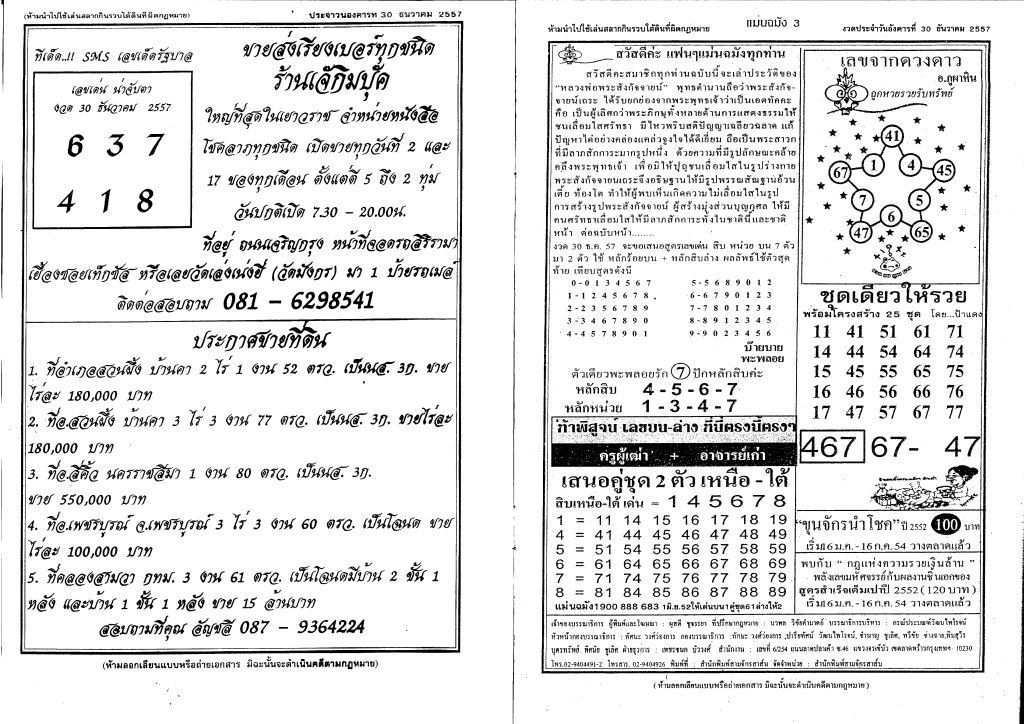 (ห้ามนำไปใช้เล่นสลากกินรวบได้ดินที่ผิดกฎหมาย)
ประจำวันอังคารที่ 30 ธันวาคม 2557
ทีเด็ด..!! SMS เลขเด็ดรัฐบาล
เลขเด่น น่าจับตา
งวด 30 ธันวาคม 2557
6 3 7
4 1 8
ขายส่งเรียงเบอร์ทุกชนิด
ร้านเจ๊กิมบุ๊ค
ใหญ่ที่สุดในเยาวราช จำหน่ายหนังสือ
โชคลาภทุกชนิด เปิดขายทุกวันที่ 2 และ
17 ของทุกเดือน ตั้งแต่ตี 5 ถึง 2 ทุ่ม
วันปกติเปิด 7.30 - 20.00น.
ที่อยู่ ถนนเจริญกรุง หน้าที่จอดรถสิริรามา
เยื้องซอยเท็กซัส หรือเลยวัดเล่งเน่งยี่ (วัดมังกร) มา 1 ป้ายรถเมล์
ติดต่อสอบถาม 081 - 6298541
ประกาศขายที่ดิน
1. ที่อำเภอสวนผึ้ง บ้านคา 2 ไร่ 1 งาน 52 ตรว. เป็นนส. 3ก. ขาย
ไร่ละ 180,000 บาท
2. ที่อ.สวนผึ้ง บ้านคา 3 ไร่ 3 งาน 77 ตรว. เป็นนส. 3ก. ขายไร่ละ
180,000 บาท
3. ที่อ.สีคิ้ว นครราชสีมา 1 งาน 80 ตรว. เป็นนส. 3ก.
ขาย 550,000 บาท
4. ที่อ.เพชรบูรณ์ จ.เพชรบูรณ์ 3 ไร่ 3 งาน 60 ตรว. เป็นโฉนด ขาย
ไร่ละ 100,000 บาท
5. ที่คลองสามวา กทม. 3 งาน 61 ตรว. เป็นโฉนดมีบ้าน 2 ชั้น 1
หลัง และบ้าน 1 ชั้น 1 หลัง ขาย 15 ล้านบาท
สอบถามที่คุณ อัญชลี 087 - 9364224
(ห้ามลอกเลียนแบบหรือถ่ายเอกสาร มิฉะนั้นจะดำเนินคดีตามกฎหมาย)
ห้ามนำไปใช้เล่นสลากกินรวบได้ดินที่ผิดกฎหมาย
แม่นฉมัง 3
งวดประจำวันอังคารที่ 30 ธันวาคม 2557
สวัสดีค่ะ แฟนๆแม่นฉมังทุกท่าน
สวัสดีค่ะสมาชิกทุกท่านฉบับนี้จะเล่าประวัติของ
"หลวงพ่อพระสังกัจจายน์" พุทธตำนานถือว่าพระสังกัจ-
จายน์เถระ ได้รับยกย่องจากพระพุทธเจ้าว่าเป็นเอตทัคคะ
คือ เป็นผู้เลิศกว่าพระภิกษุทั้งหลายด้านการแสดงธรรมให้
ชนเลื่อมใสศรัทธา มีไหวพริบสติปัญญาเฉลียวฉลาด แก้
ปัญหาใดอย่างคล่องแคล่วจูงใจได้ดีเยี่ยม ถือเป็นพระสาวก
ที่มีลาภสักการะมากรูปหนึ่ง ด้วยความที่มีรูปลักษณะคล้าย
คลึงพระพุทธเจ้า เพื่อมิให้ปุถุชนเลื่อมใสในรูปร่างกาย
พระสังกัจจายน์เถระจึงอธิษฐานให้มีรูปพรรณสัณฐานอ้วน
เตี้ย ท้องโต ทำให้ผู้พบเห็นเกิดความไม่เลื่อมใสในรูป
การสร้างรูปพระสังกัจจายน์ ผู้สร้างมุ่งส่วนบุญกุศล ให้มี
คนศรัทธาเลื่อมใสให้มีลาภสักการะทั้งในชาตินี้และชาติ
หน้า ต่อฉบับหน้า........
งวด 30 ธ.ค. 57 จะขอเสนอสูตรเลขเด่น สิบ หน่วย บน 7 ตัว
มา 2 ตัว ใช้ หลักร้อยบน + หลักสิบล่าง ผลลัพธ์ใช้ตัวสุด
ท้าย เทียบสูตรดังนี้
0-0 1 3 4 5 6 7
5-5 6 8 9 0 1 2
1-1 2 4 5 6 7 8
6-6 7 9 0 1 2 3
2-2 3 5 6 7 8 9
7-7 8 0 1 2 3 4
3-3 4 6 7 8 9 0
8-8 9 1 2 3 4 5
4-4 5 7 8 9 0 1
9-9 0 2 3 4 5 6
บ๊ายบาย
พะพลอย
ตัวเดียวพะพลอยรัก 7 ปักหลักสิบค่ะ
หลักสิบ 4 - 5 - 6 - 7
หลักหน่วย 1 - 3 - 4 - 7
ท้าพิสูจน์ เลขบน-ล่าง ที่นี่ตรงนี้ตรงๆ
ครูผู้เฒ่า + อาจารย์เก่า
เสนอคู่ชุด 2 ตัว เหนือ - ใต้
สิบเหนือ-ใต้ เด่น = 1 4 5 6 7 8
1 = 11 14 15 16 17 18 19
4 = 41 44 45 46 47 48 49
5 = 51 54 55 56 57 58 59
6 = 61 64 65 66 67 68 69
7 = 71 74 75 76 77 78 79
8 = 81 84 85 86 87 88 89
แม่นฉมัง1900 888 683 1มิ.ย.52ให้เด่นบน1คู่ชุด61ล่างให้2
เลขจากดวงดาว
อ.ภูผาหิน
ถูกหวยรวยรับทรัพย์
41
67 1 4 45
7 5
47 6 65
ชุดเดียวให้รวย
พร้อมโครงสร้าง 25 ชุด โดย...ป้าแดง
11 41 51 61 71
14 44 54 64 74
15 45 55 65 75
16 46 56 66 76
17 47 57 67 77
467 67- 47
"ขุนจักรนำโชค" ปี 2552 100 บาท
เริ่ม16 ม.ค. -16 ก.ค. 54 วางตลาดแล้ว
พบกับ " กฎแห่งความรวยเงินล้าน "
พลังเลขมหัศจรรย์กับผลงานชิ้นเอกของ
สูตรสำเร็จเต็มเปาปี 2552 (120 บาท)
เริ่ม16 ม.ค. -16 ก.ค. 54 วางตลาดแล้ว
(ห้ามลอกเลียนแบบหรือถ่ายเอกสาร มิฉะนั้นจะดำเนินคดีตามกฎหมาย)